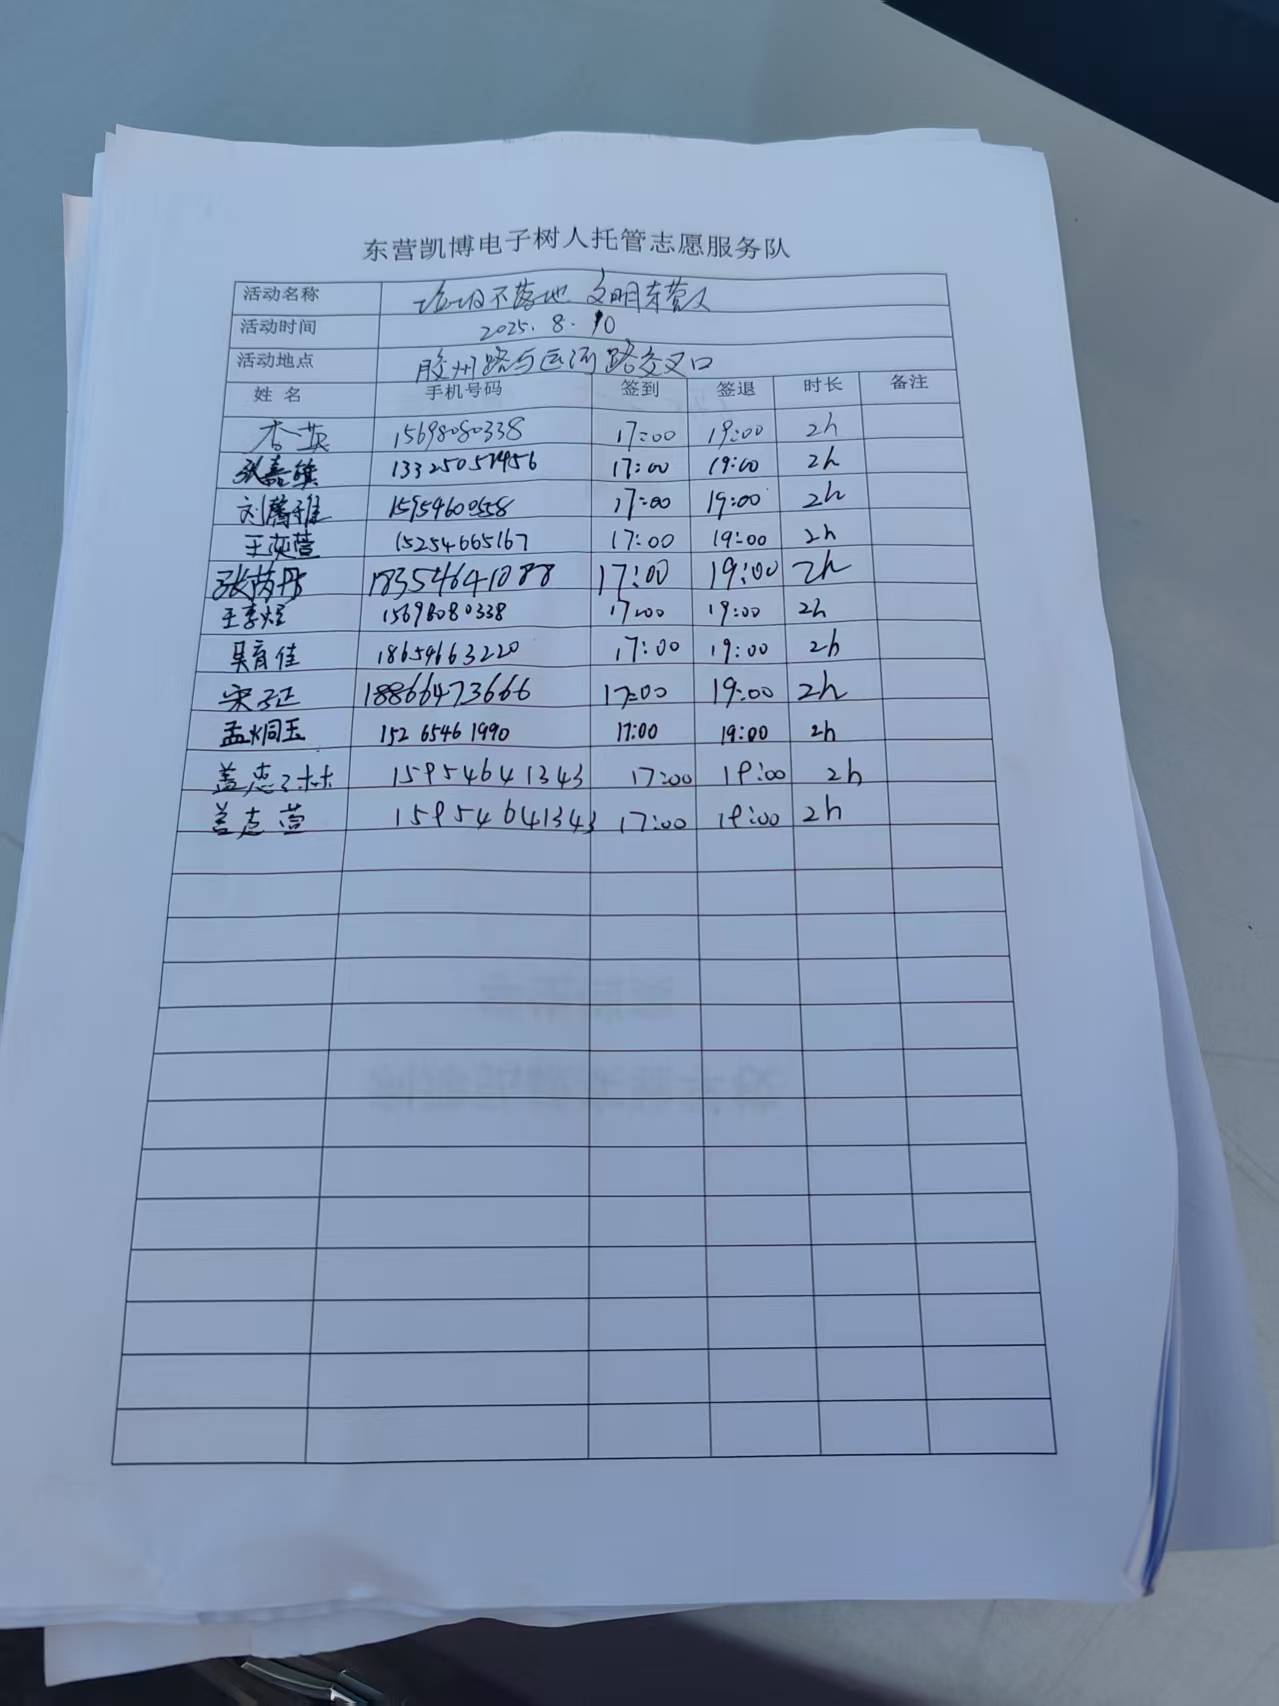 东营凯博电子树人托管志愿服务队
活动名称 垃圾不落地 文明东营人
活动时间 2025.8.10
活动地点 胶州路与运河路交叉口
姓名 手机号码 签到 签退 时长 备注
李英 15698080338 17:00 19:00 2h
张嘉 17:00 19:00 2h
刘腾雅 15954600558 17:00 19:00 2h
王奕萱 15254665167 17:00 19:00 2h
张芮彤 18354641088 17:00 19:00 2h
王李煜 15698080338 17:00 19:00 2h
吴育佳 18654663220 17:00 19:00 2h
宋 18866473666 17:00 19:00 2h
孟炯玉 152 6546 1990 17:00 19:00 2h
盖志林 15954641343 17:00 19:00 2h
盖志萱 15954641343 17:00 19:00 2h